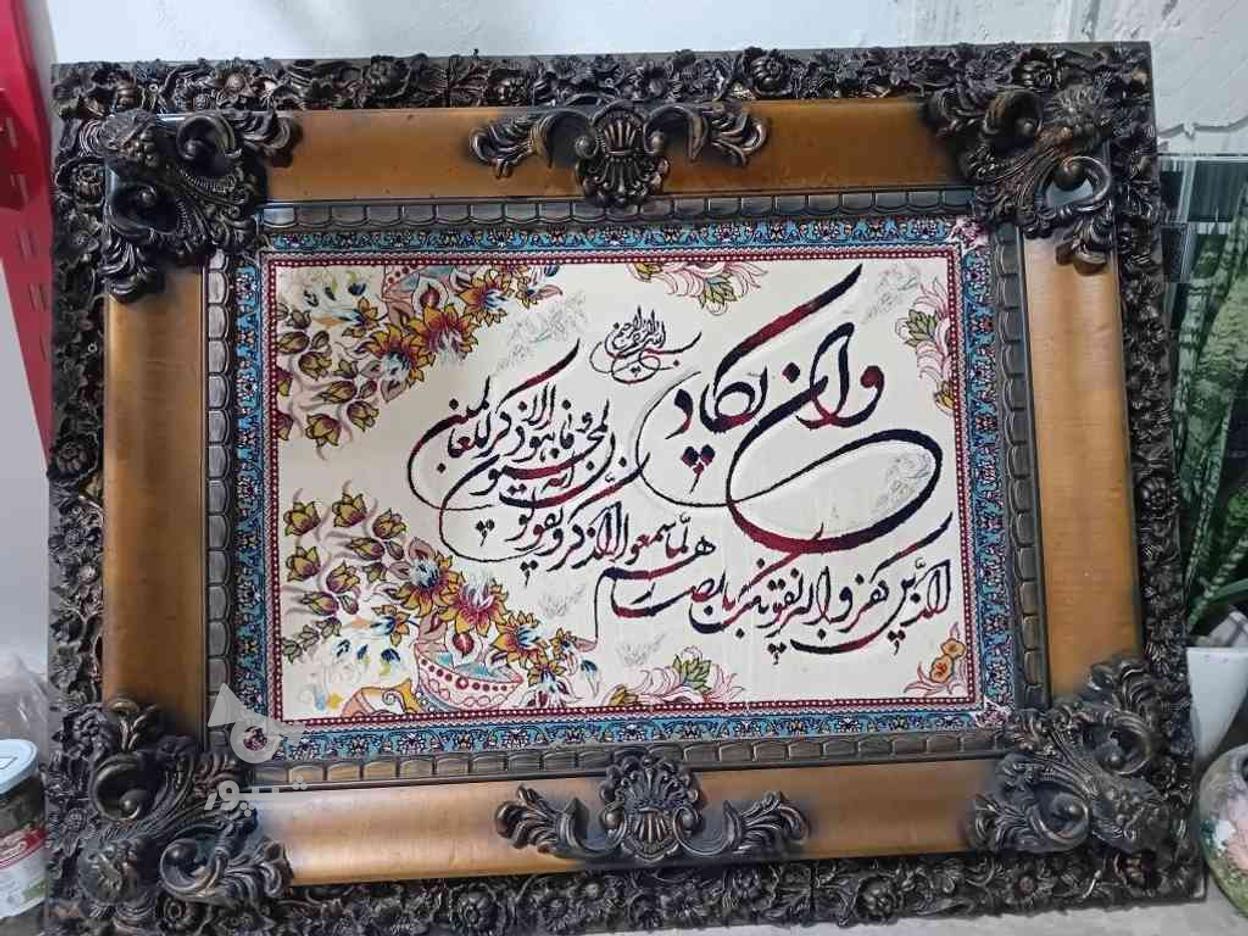 بسم الله الرحمن الرحیم
وان یکاد
الذین کفروا لیزلقونک بابصارهم
لما سمعوا الذکر و یقولون
انه لمجنون
و ما هو الا ذکر للعالمین
شیپور